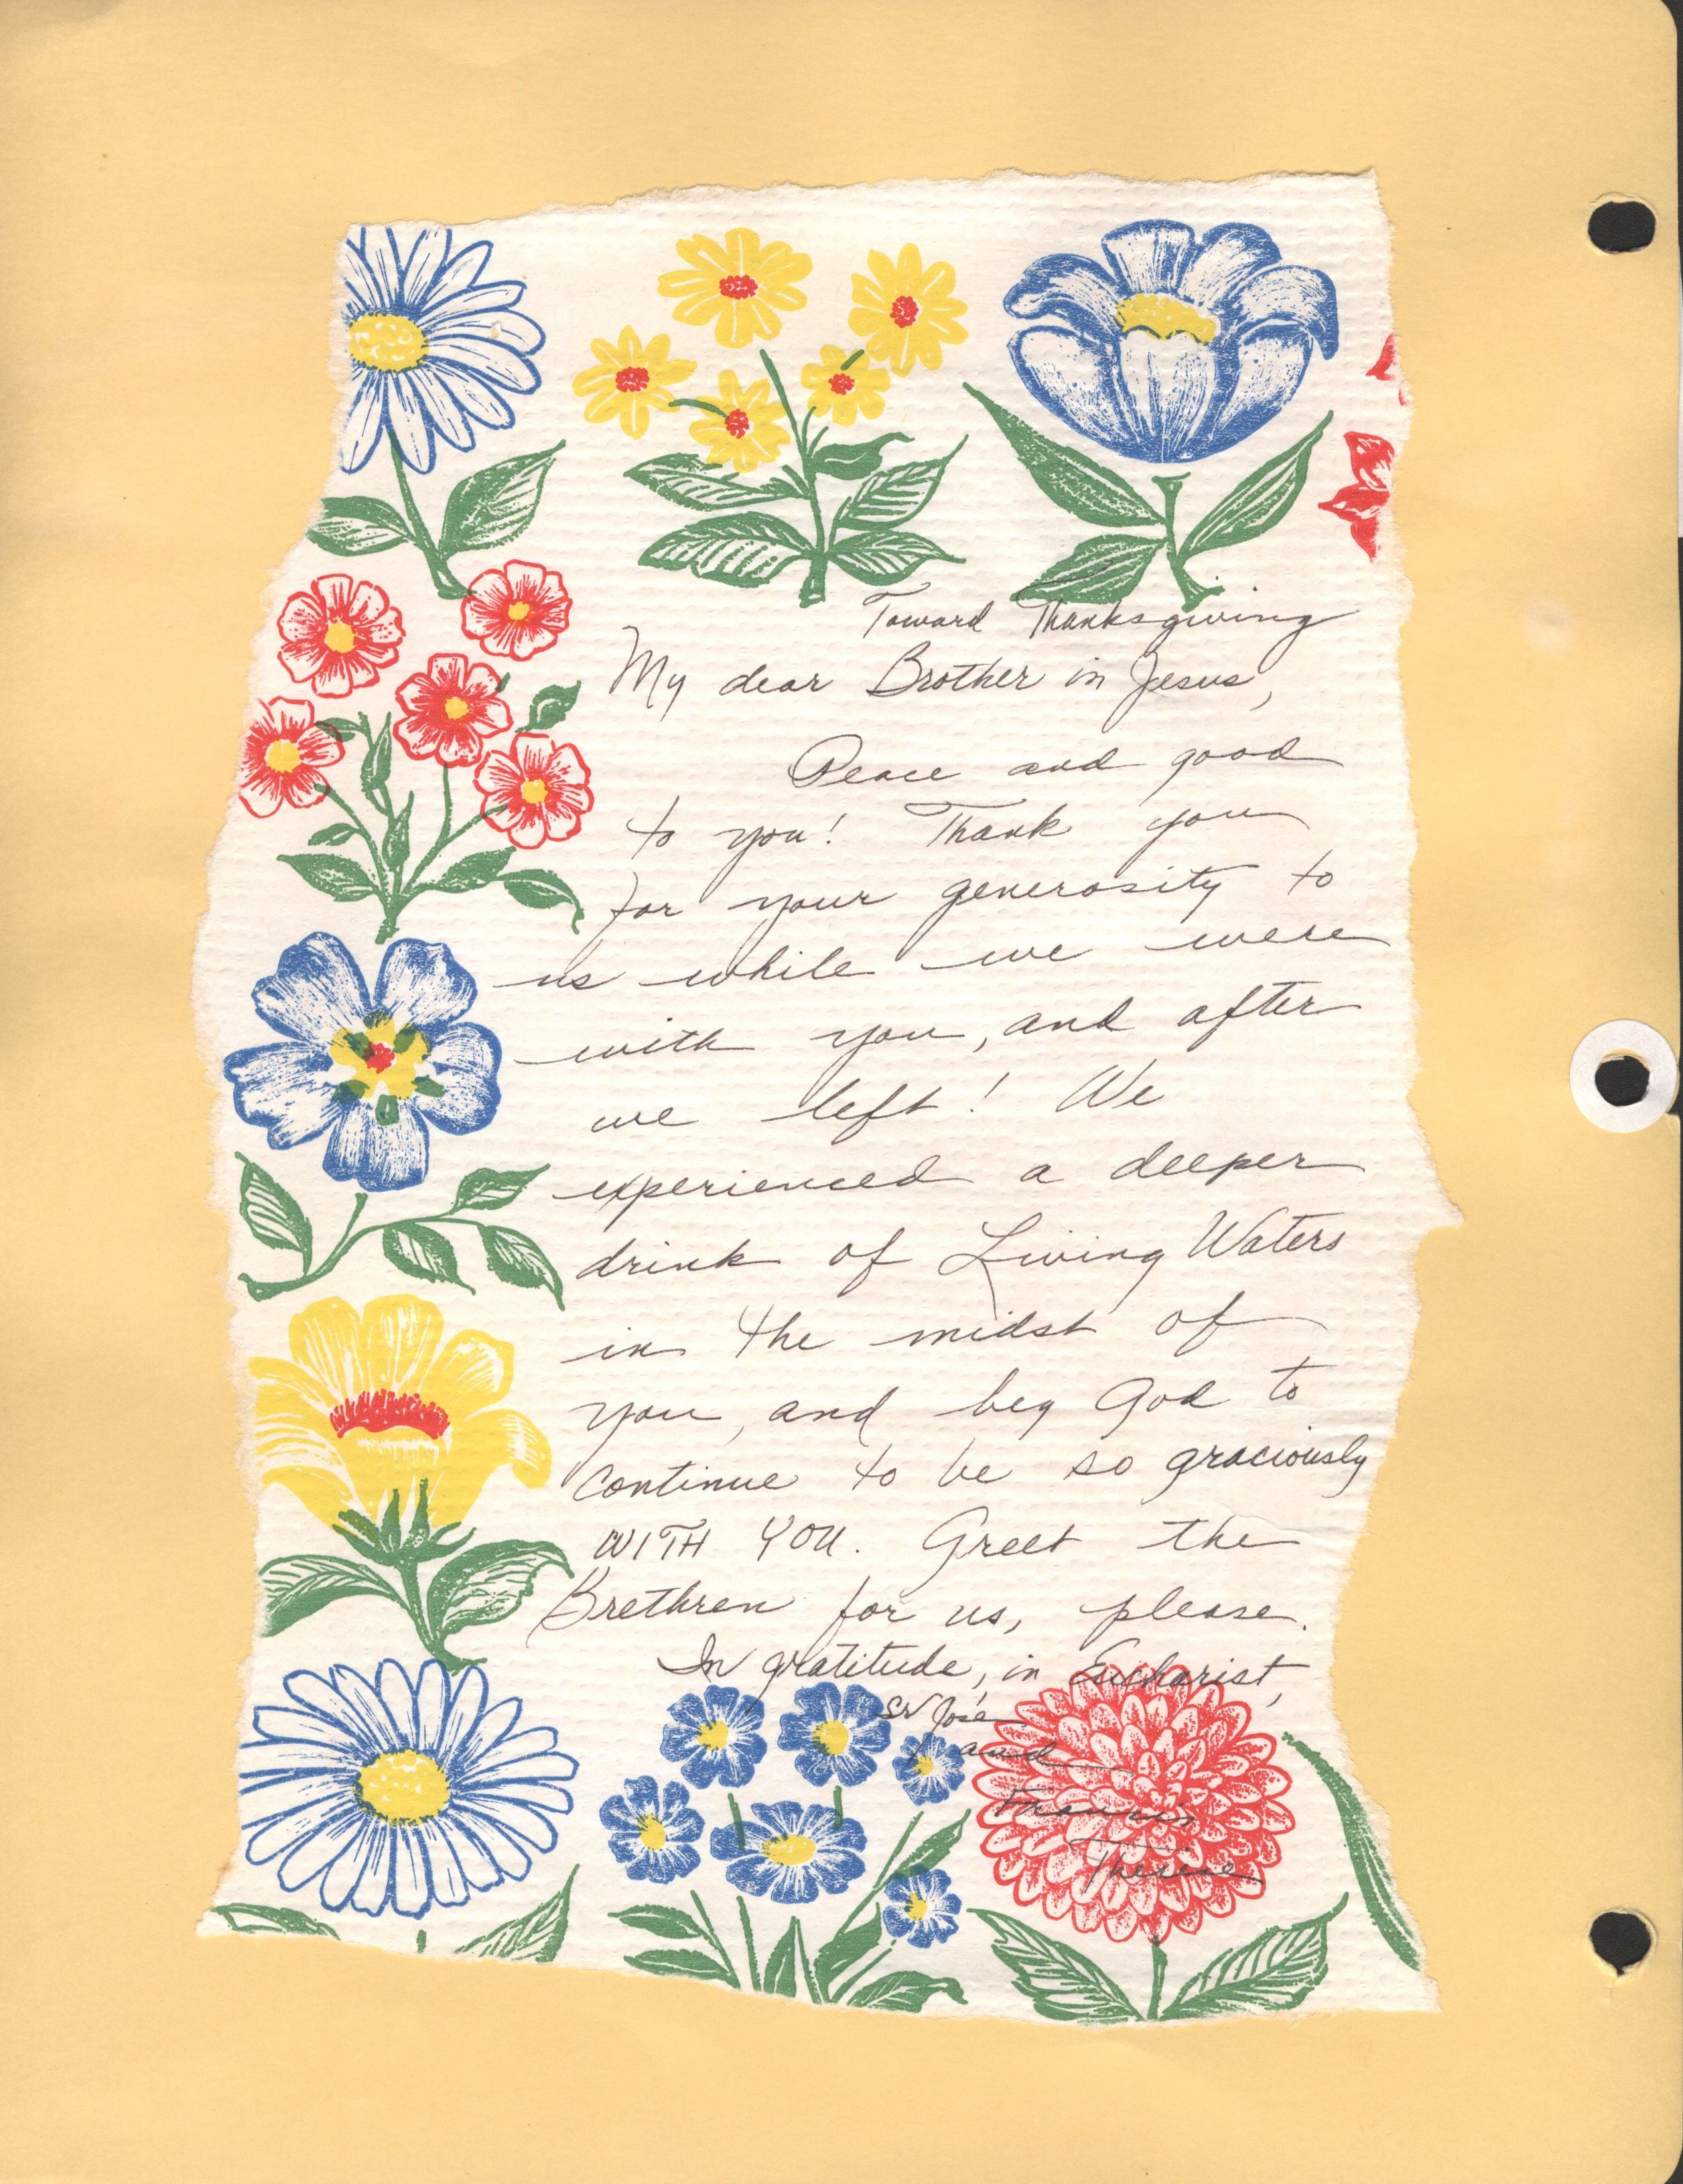 Toward Thanksgiving
My dear Brother in Jesus,
Peace and good
to you! Thank you
for your generosity to
us while we were
with you, and after
we left! We
experienced a deeper
drink of Living Waters
in the midst of
you, and beg God to
continue to be so graciously
WITH YOU. Greet the
Brethren for us, please.
In gratitude, in Eucharist,
Sr José
and
Francis
Therese